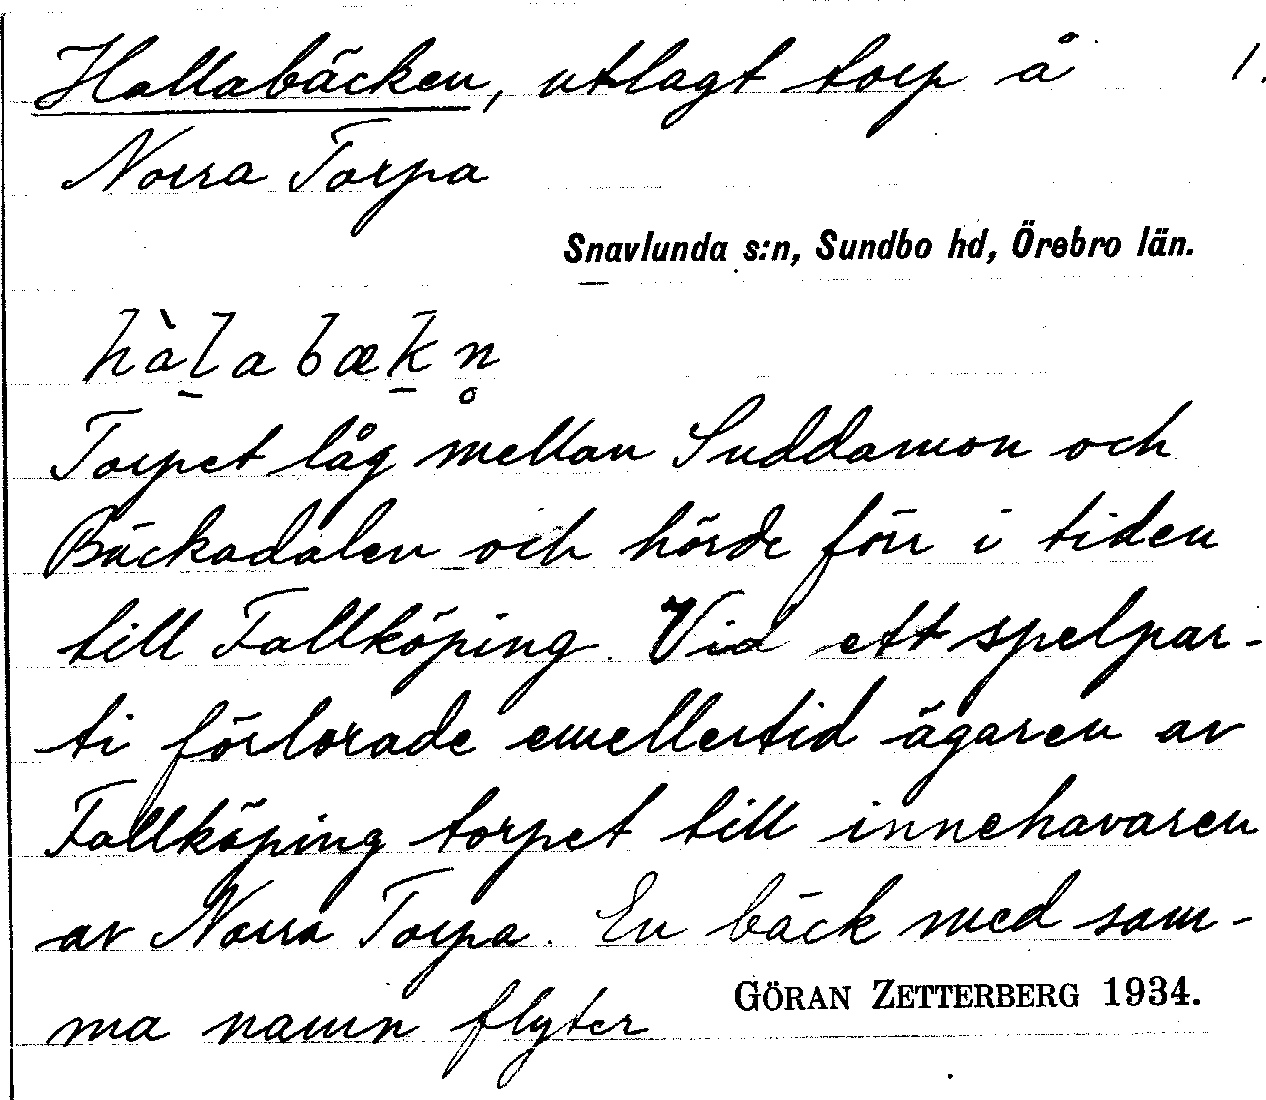 Hallabäcken, utlagt torp å 1.
Norra Torpa
Snavlunda s:n, Sundbo hd, Örebro län.
hàl̠abæk̠n̥
Torpet låg mellan Suddamon och
Bäckadalen och hörde förr i tiden
till Fallköping. Vid ett spelpar-
ti förlorade emellertid ägaren av
Fallköping torpet till innehavaren
av Norra Torpa. En bäck med sam-
ma namn flyter
GÖRAN ZETTERBERG 1934.